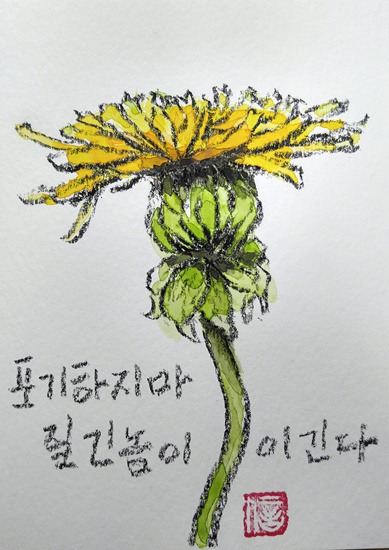 포기하지마
질긴놈이 이긴다